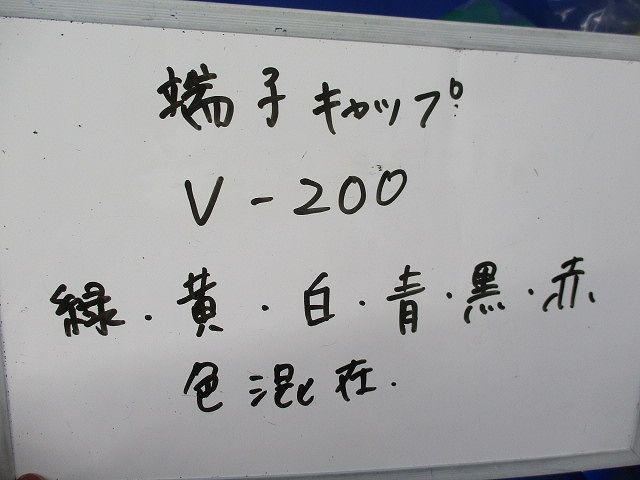 端子キャップ
V-200
緑・黄・白・青・黒・赤
色混在.